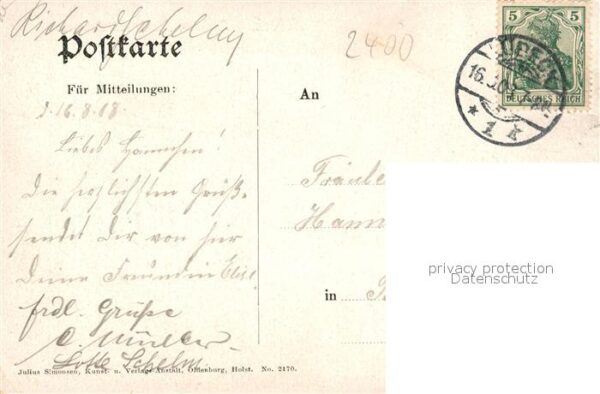 Richard Schelm
Postkarte
2400
5 5
LÜBECK
DEUTSCHES REICH
* 1 k
Für Mitteilungen:
An
16.8.08
Liebes Hannchen!
Die herzlichsten Grüße
sendet Dir von hier
Deine Freundin Elise
frdl. Grüße
C. Müller
Lotte Schelm.
Fräulei
Hann
in
privacy protection
Datenschutz
Julius Simonsen, Kunst- u. Verlags-Anstalt, Oldenburg, Holst. No. 2170.